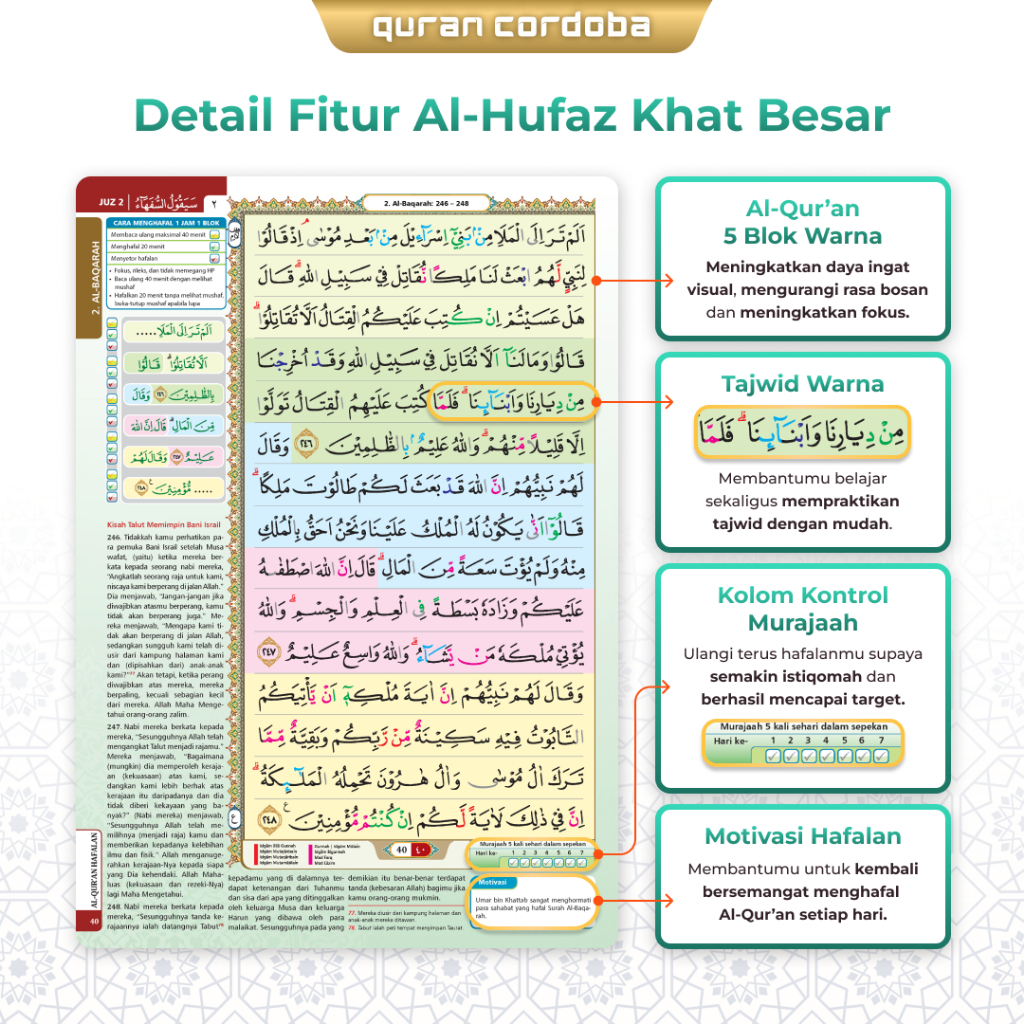 quran cordoba
Detail Fitur Al-Hufaz Khat Besar
JUZ 2
سَيَقُوْلُ السُّفَهَاۤءُ
٢
2. AL-BAQARAH
CARA MENGHAFAL 1 JAM 1 BLOK
Membaca ulang maksimal 40 menit
Menghafal 20 menit
Menyetor hafalan
• Fokus, rileks, dan tidak memegang HP
• Baca ulang 40 menit dengan melihat
mushaf
• Hafalkan 20 menit tanpa melihat mushaf,
buka-tutup mushaf apabila lupa
اَلَمْ تَرَ اِلَى الْمَلَاِ.....
اَلَّا تُقَاتِلُوْاۗ قَالُوْا
بِالظّٰلِمِيْنَ ٢٤٦ وَقَالَ
مِّنَ الْمَالِۗ قَالَ اِنَّ اللّٰهَ
عَلِيْمٌ ٢٤٧ وَقَالَ لَهُمْ
..... مُّؤْمِنِيْنَ ٢٤٨
Kisah Talut Memimpin Bani Israil
246. Tidakkah kamu perhatikan pa-
ra pemuka Bani Israil setelah Musa
wafat, (yaitu) ketika mereka ber-
kata kepada seorang nabi mereka,
“Angkatlah seorang raja untuk kami,
niscaya kami berperang di jalan Allah.”
Dia menjawab, “Jangan-jangan jika
diwajibkan atasmu berperang, kamu
tidak akan berperang juga.” Me-
reka menjawab, “Mengapa kami ti-
dak akan berperang di jalan Allah,
sedangkan sungguh kami telah di-
usir dari kampung halaman kami
dan (dipisahkan dari) anak-anak
kami?”77 Akan tetapi, ketika perang
diwajibkan atas mereka, mereka
berpaling, kecuali sebagian kecil
dari mereka. Allah Maha Menge-
tahui orang-orang zalim.
247. Nabi mereka berkata kepada
mereka, “Sesungguhnya Allah telah
mengangkat Talut menjadi rajamu.”
Mereka menjawab, “Bagaimana
(mungkin) dia memperoleh keraja-
an (kekuasaan) atas kami, se-
dangkan kami lebih berhak atas
kerajaan itu daripadanya dan dia
tidak diberi kekayaan yang ba-
nyak?” (Nabi mereka) menjawab,
“Sesungguhnya Allah telah me-
milihnya (menjadi raja) kamu dan
memberikan kepadanya kelebihan
ilmu dan fisik.” Allah menganuge-
rahkan kerajaan-Nya kepada siapa
yang Dia kehendaki. Allah Maha-
luas (kekuasaan dan rezeki-Nya)
lagi Maha Mengetahui.
248. Nabi mereka berkata kepada
mereka, “Sesungguhnya tanda ke-
rajaannya ialah datangnya Tabut78
AL-QUR'AN HAFALAN
40
2. Al-Baqarah: 246 – 248
اَلَمْ تَرَ اِلَى الْمَلَاِ مِنْۢ بَنِيْٓ اِسْرَاۤءِيْلَ مِنْۢ بَعْدِ مُوْسٰىۘ اِذْ قَالُوْا
لِنَبِيٍّ لَّهُمُ ابْعَثْ لَنَا مَلِكًا نُّقَاتِلْ فِيْ سَبِيْلِ اللّٰهِ ۗ قَالَ
هَلْ عَسَيْتُمْ اِنْ كُتِبَ عَلَيْكُمُ الْقِتَالُ اَلَّا تُقَاتِلُوْاۗ
قَالُوْا وَمَا لَنَآ اَلَّا نُقَاتِلَ فِيْ سَبِيْلِ اللّٰهِ وَقَدْ اُخْرِجْنَا
مِنْ دِيَارِنَا وَاَبْنَاۤىِٕنَا ۗ فَلَمَّا كُتِبَ عَلَيْهِمُ الْقِتَالُ تَوَلَّوْا
اِلَّا قَلِيْلًا مِّنْهُمْ ۗوَاللّٰهُ عَلِيْمٌۢ بِالظّٰلِمِيْنَ ٢٤٦ وَقَالَ
لَهُمْ نَبِيُّهُمْ اِنَّ اللّٰهَ قَدْ بَعَثَ لَكُمْ طَالُوْتَ مَلِكًا ۗ
قَالُوْٓا اَنّٰى يَكُوْنُ لَهُ الْمُلْكُ عَلَيْنَا وَنَحْنُ اَحَقُّ بِالْمُلْكِ
مِنْهُ وَلَمْ يُؤْتَ سَعَةً مِّنَ الْمَالِۗ قَالَ اِنَّ اللّٰهَ اصْطَفٰىهُ
عَلَيْكُمْ وَزَادَهٗ بَسْطَةً فِى الْعِلْمِ وَالْجِسْمِ ۗ وَاللّٰهُ
يُؤْتِيْ مُلْكَهٗ مَنْ يَّشَاۤءُ ۗ وَاللّٰهُ وَاسِعٌ عَلِيْمٌ ٢٤٧
وَقَالَ لَهُمْ نَبِيُّهُمْ اِنَّ اٰيَةَ مُلْكِهٖٓ اَنْ يَّأْتِيَكُمُ
التَّابُوْتُ فِيْهِ سَكِيْنَةٌ مِّنْ رَّبِّكُمْ وَبَقِيَّةٌ مِّمَّا
تَرَكَ اٰلُ مُوْسٰى وَاٰلُ هٰرُوْنَ تَحْمِلُهُ الْمَلٰۤىِٕكَةُ ۗ
اِنَّ فِيْ ذٰلِكَ لَاٰيَةً لَّكُمْ اِنْ كُنْتُمْ مُّؤْمِنِيْنَ ٢٤٨
40 ٤٠
Murajaah 5 kali sehari dalam sepekan
Hari ke- 1 2 3 4 5 6 7
kepadamu yang di dalamnya ter-
dapat ketenangan dari Tuhanmu
dan sisa dari apa yang ditinggalkan
oleh keluarga Musa dan keluarga
Harun yang dibawa oleh para
malaikat. Sesungguhnya pada yang
demikian itu benar-benar terdapat
tanda (kebesaran Allah) bagimu jika
kamu orang-orang mukmin.
77. Mereka diusir dari kampung halaman dan
anak-anak mereka ditawan.
78. Tabut ialah peti tempat menyimpan Taurat
Motivasi
Umar bin Khattab sangat menghormati
para sahabat yang hafal Surah Al-Baqa-
rah.
Al-Qur’an
5 Blok Warna
Meningkatkan daya ingat
visual, mengurangi rasa bosan
dan meningkatkan fokus.
Tajwid Warna
مِنْ دِيَارِنَا وَاَبْنَاۤىِٕنَا ۗ فَلَمَّا
Membantumu belajar
sekaligus mempraktikan
tajwid dengan mudah.
Kolom Kontrol
Murajaah
Ulangi terus hafalanmu supaya
semakin istiqomah dan
berhasil mencapai target.
Murajaah 5 kali sehari dalam sepekan
Hari ke- 1 2 3 4 5 6 7
Motivasi Hafalan
Membantumu untuk kembali
bersemangat menghafal
Al-Qur’an setiap hari.